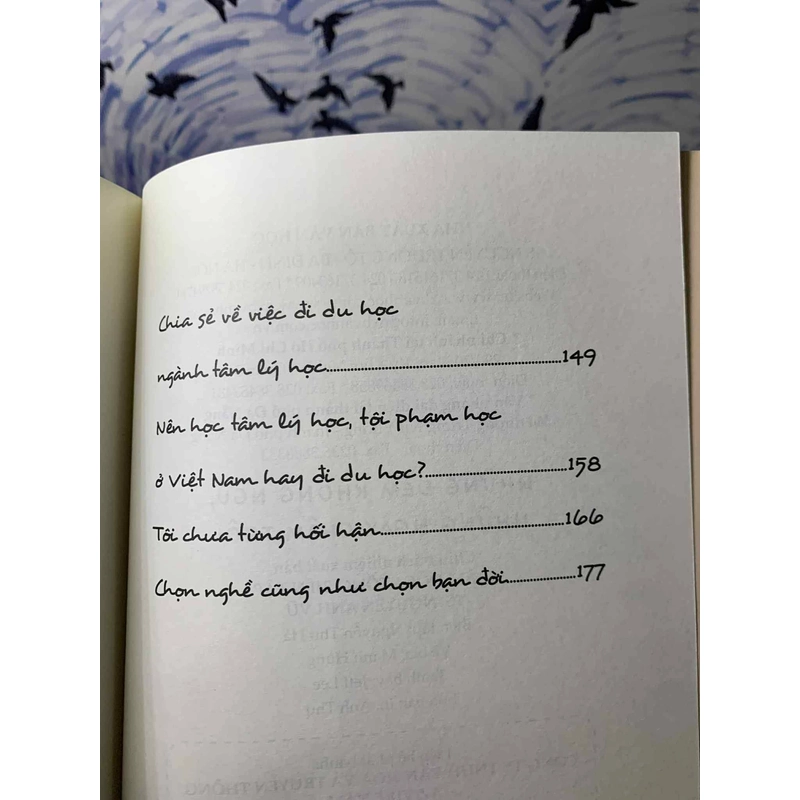 Chia sẻ về việc đi du học
ngành tâm lý học..........149
Nên học tâm lý học, tội phạm học
ở Việt Nam hay đi du học?..........158
Tôi chưa từng hối hận..........166
Chọn nghề cũng như chọn bạn đời..........177